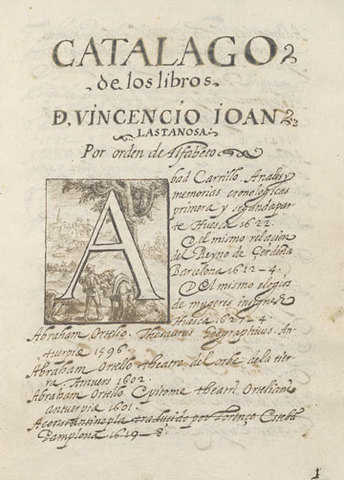 CATALAGO
de los libros
D. VINCENCIO IOAN
LASTANOSA
Por orden de Alfabeto
A
bad Carrillo. Anales y
memorias cronologicas
primera y segunda par-
te Huesca 1622.
el mismo relacion
del Reyno de Cerdeña
Barcelona 1612-4-
El mismo elogios
de mugeres insignes
Huesca 1627-4-
Abraham Ortello. Thesaurus Geographicus. An-
tuerpia 1596.
Abraham Ortello theatro del orbe de la tier-
ra Anvers 1602.
Abraham Ortello Epitome theatri Orteliani
antuerpia 1601.
Aconstantinopla traducido por Lorenço
Pamplona 1619-8-
1